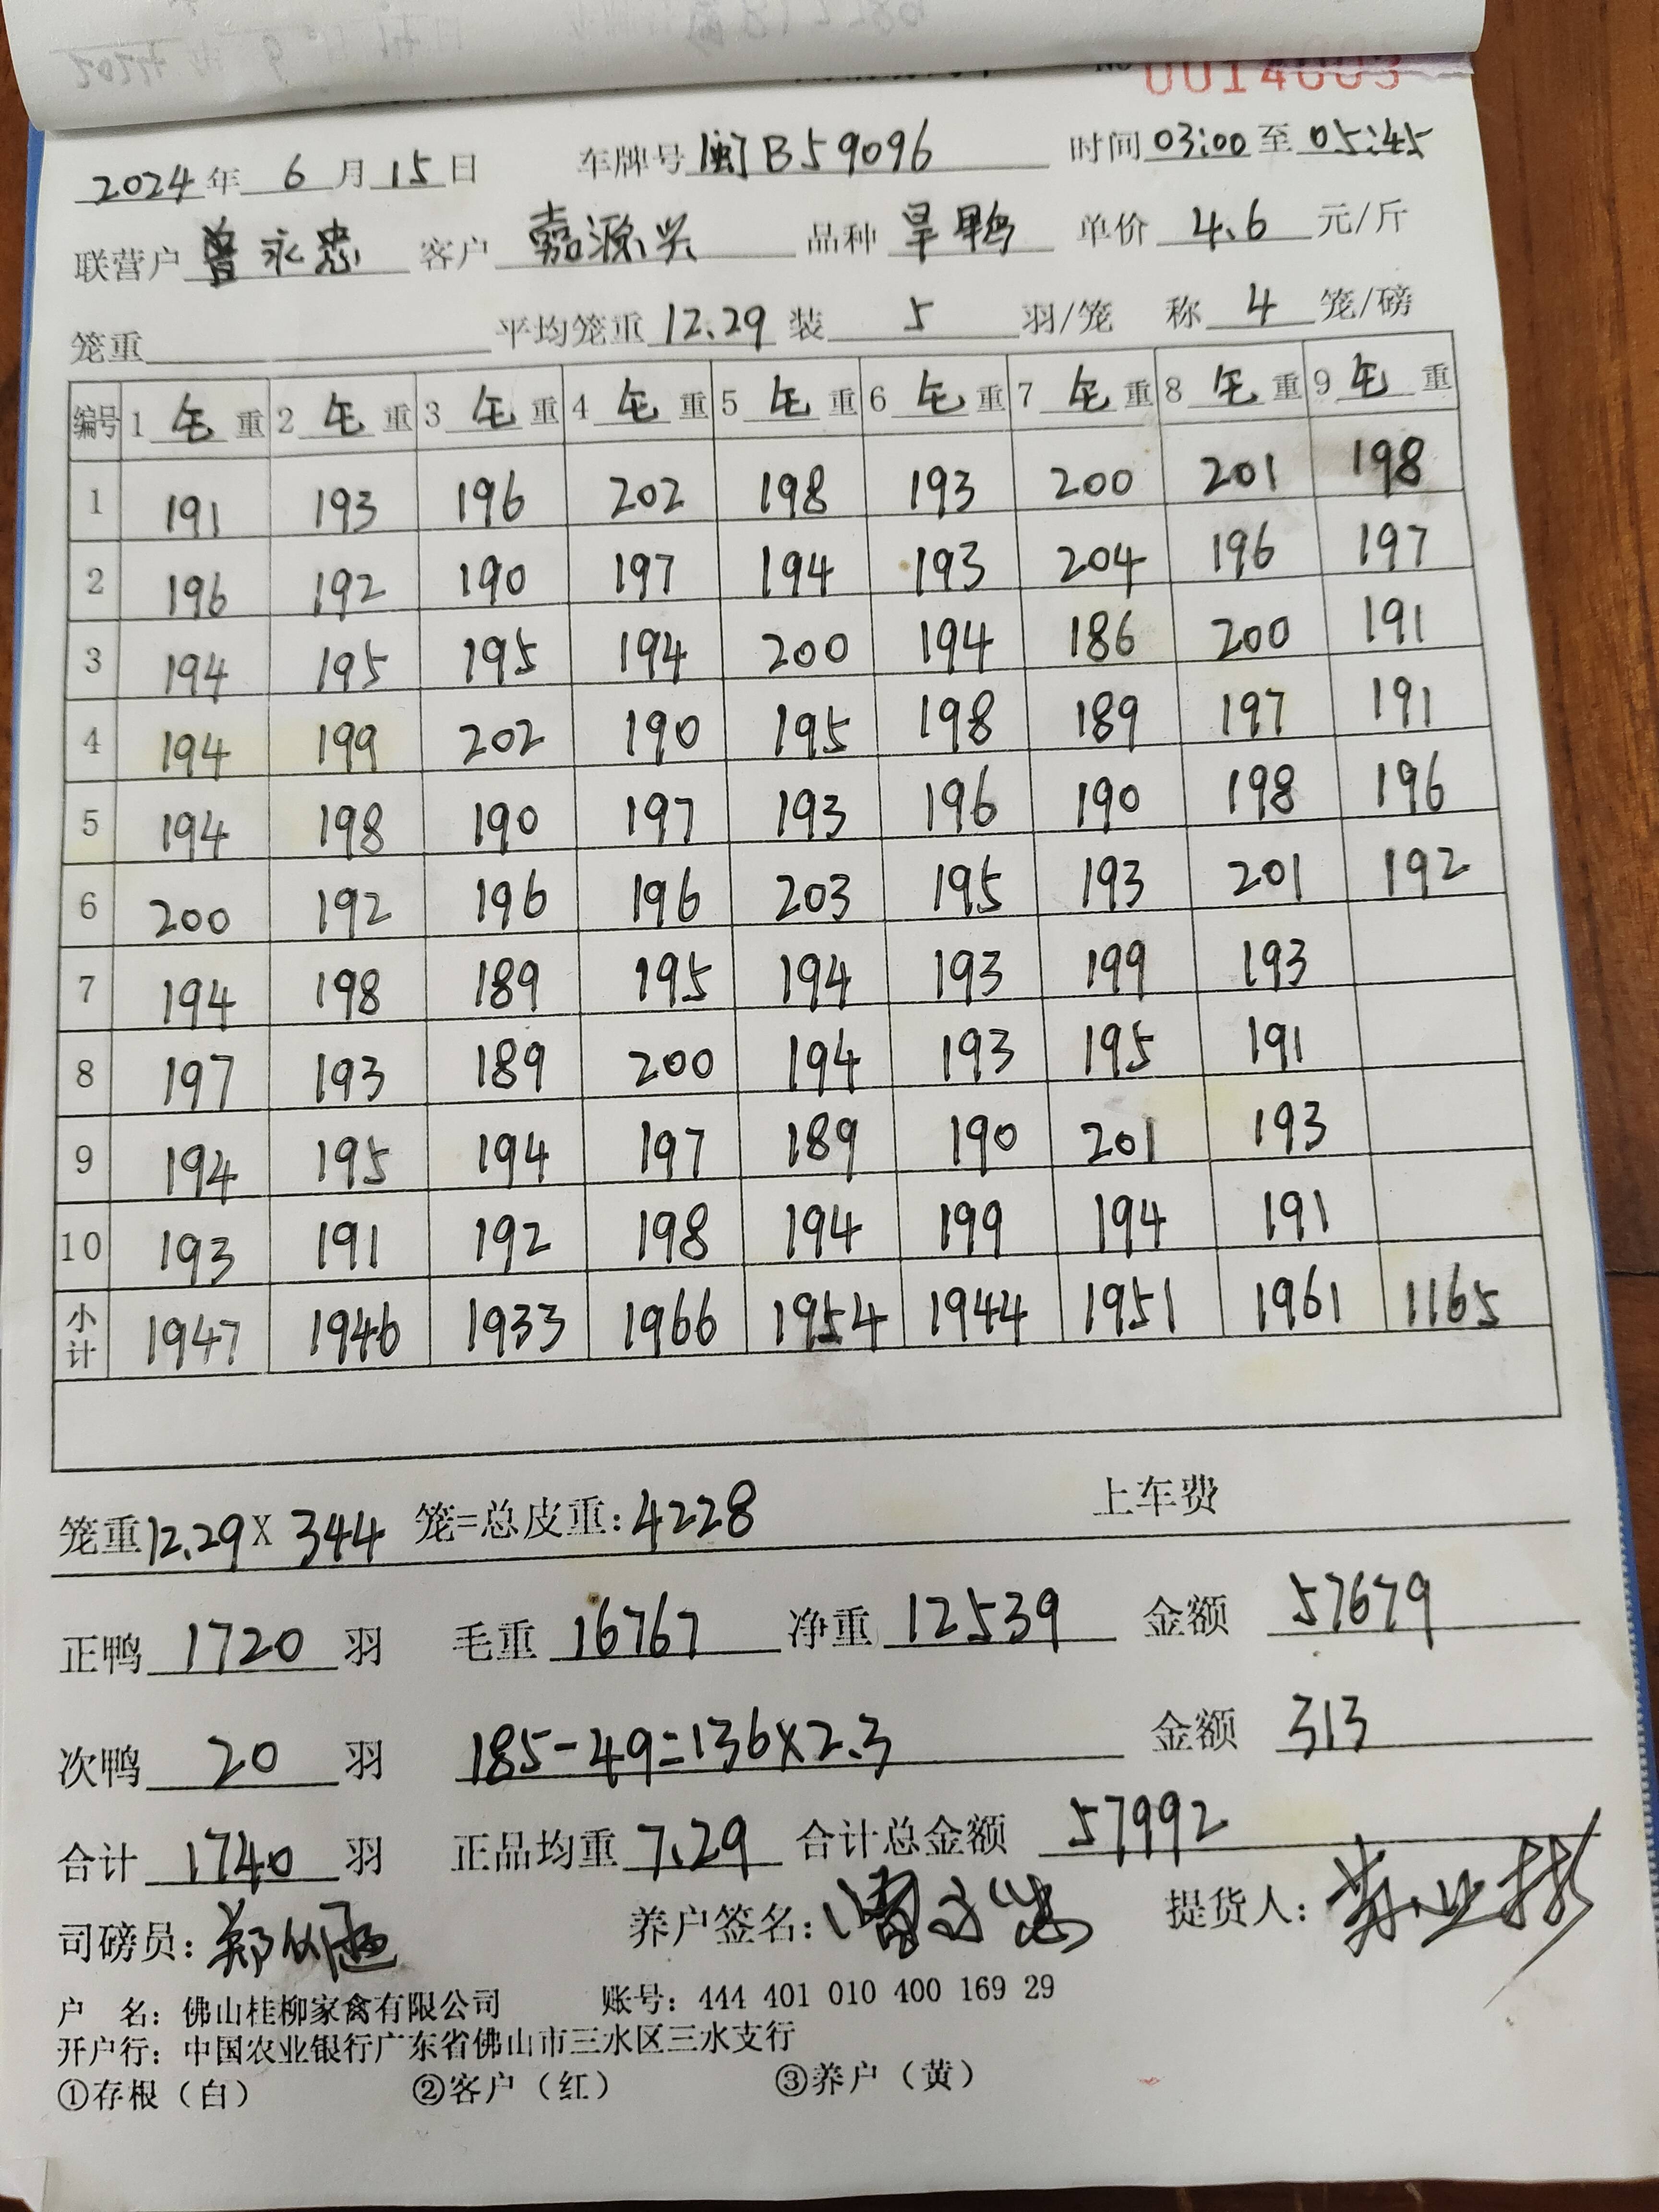 № 0014003
2024年 6 月 15 日 车牌号 闽B59096 时间 03:00 至 05:45
联营户 曾永忠 客户 嘉源兴 品种 旱鸭 单价 4.6 元/斤
笼重 平均笼重 12.29 装 5 羽/笼 称 4 笼/磅
编号 1 毛 重 2 毛 重 3 毛 重 4 毛 重 5 毛 重 6 毛 重 7 毛 重 8 毛 重 9 毛 重
1 191 193 196 202 198 193 200 201 198
2 196 192 190 197 194 193 204 196 197
3 194 195 195 194 200 194 186 200 191
4 194 199 202 190 195 198 189 197 191
5 194 198 190 197 193 196 190 198 196
6 200 192 196 196 203 195 193 201 192
7 194 198 189 195 194 193 199 193
8 197 193 189 200 194 193 195 191
9 194 195 194 197 189 190 201 193
10 193 191 192 198 194 199 194 191
小计 1947 1946 1933 1966 1954 1944 1951 1961 1165
笼重 12.29 X 344 笼=总皮重: 4228 上车费
正鸭 1720 羽 毛重 16767 净重 12539 金额 57679
次鸭 20 羽 185-49=136×2.3 金额 313
合计 1740 羽 正品均重 7.29 合计总金额 57992
司磅员: 养户签名: 曾永忠 提货人:
户 名: 佛山桂柳家禽有限公司 账号: 444 401 010 400 169 29
开户行: 中国农业银行广东省佛山市三水区三水支行
①存根（白） ②客户（红） ③养户（黄）